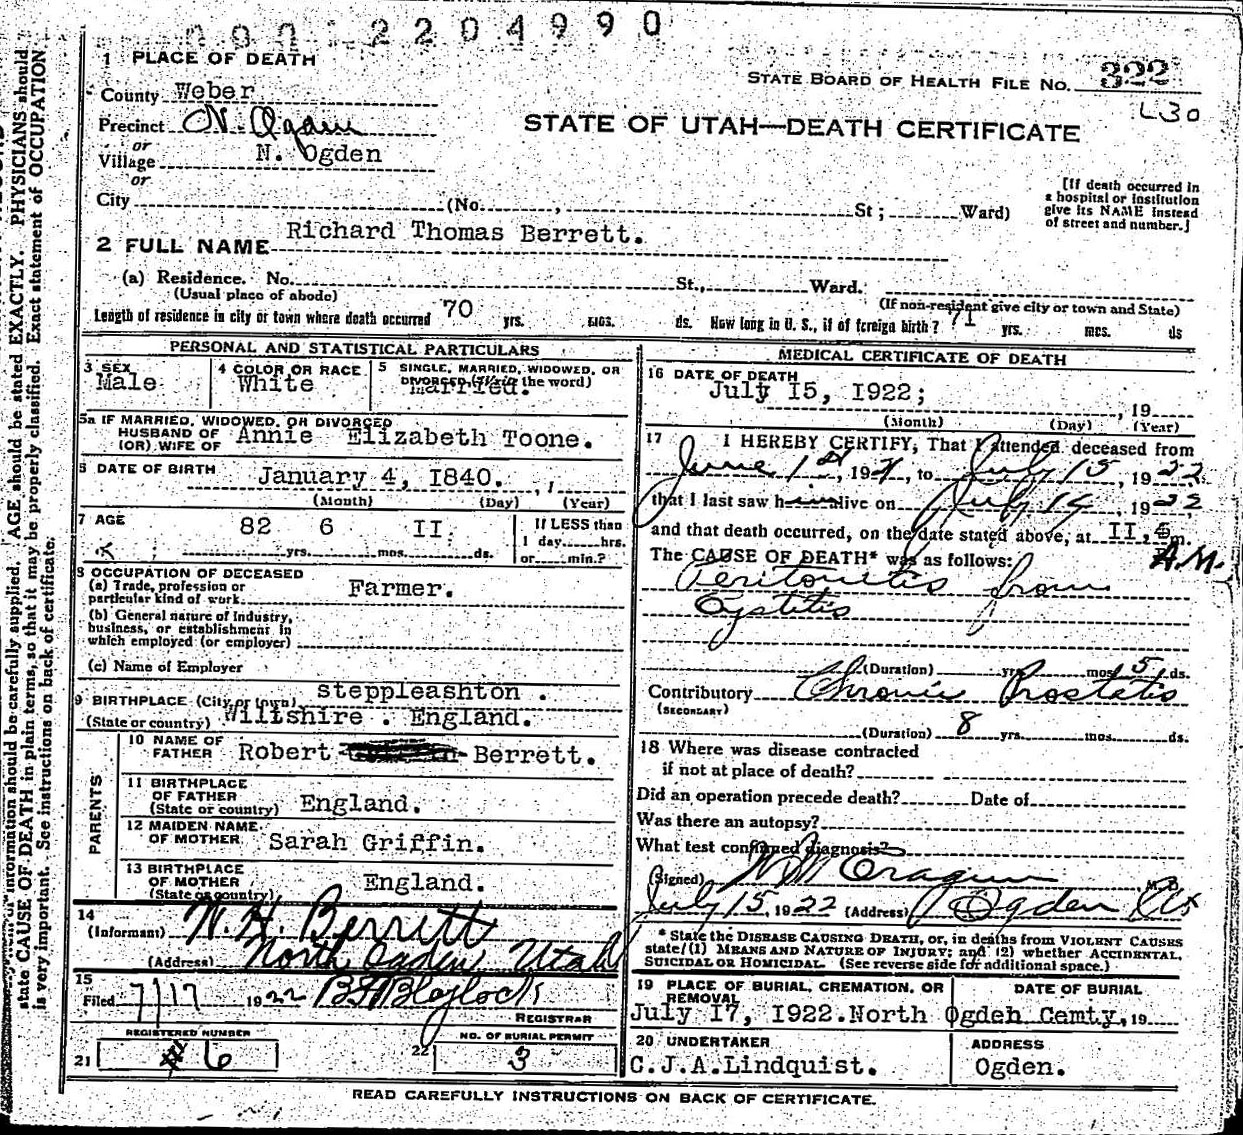 2204990
1 PLACE OF DEATH
STATE BOARD OF HEALTH FILE NO. 322
County Weber
L30
Precinct N. Ogden
STATE OF UTAH—DEATH CERTIFICATE
or
Village N. Ogden
or
City (No. , St ; Ward)
[If death occurred in
a hospital or institution
give its NAME instead
of street and number.]
2 FULL NAME Richard Thomas Berrett.
(a) Residence. No. St., Ward.
(Usual place of abode) (If non-resident give city or town and State)
Length of residence in city or town where death occurred 70 yrs. mos. ds. How long in U. S., if of foreign birth? 71 yrs. mos. ds
PERSONAL AND STATISTICAL PARTICULARS
3 SEX
Male
4 COLOR OR RACE
White
5 SINGLE, MARRIED, WIDOWED, OR
DIVORCED (Write the word)
Married.
5a IF MARRIED, WIDOWED, OR DIVORCED
HUSBAND OF
(OR) WIFE OF Annie Elizabeth Toone.
6 DATE OF BIRTH January 4, 1840. , 1
(Month) (Day) (Year)
7 AGE 82 6 II
yrs. mos. ds.
If LESS than
1 day hrs.
or min.?
8 OCCUPATION OF DECEASED
(a) Trade, profession or
particular kind of work Farmer.
(b) General nature of industry,
business, or establishment in
which employed (or employer)
(c) Name of Employer
9 BIRTHPLACE (City or town) steppleashton .
(State or country) Wiltshire . England.
PARENTS
10 NAME OF
FATHER Robert Berrett.
11 BIRTHPLACE
OF FATHER
(State or country) England.
12 MAIDEN NAME
OF MOTHER Sarah Griffin.
13 BIRTHPLACE
OF MOTHER
(State or country) England.
14
(Informant) W. H. Berrett
(Address) North Ogden Utah
15
Filed 7/17 1922 B F Blaylock
REGISTRAR
REGISTERED NUMBER
21 # 6
NO. OF BURIAL PERMIT
22 3
MEDICAL CERTIFICATE OF DEATH
16 DATE OF DEATH
July I5, I922;
, 19
(Month) (Day) (Year)
17 I HEREBY CERTIFY, That I attended deceased from
June 1st, 1921, to July 15, 1922
that I last saw him alive on July 14, 1922
and that death occurred, on the date stated above, at II, m.
A.M.
The CAUSE OF DEATH* was as follows:
Peritonitis from
Cystitis
(Duration) yrs. mos. 5 ds.
Contributory Chronic Prostatis
(SECONDARY)
(Duration) 8 yrs. mos. ds.
18 Where was disease contracted
if not at place of death?
Did an operation precede death? Date of
Was there an autopsy?
What test confirmed diagnosis?
(Signed) M. D.
July 15, 1922 (Address) Ogden Ut
* State the DISEASE CAUSING DEATH, or, in deaths from VIOLENT CAUSES
state (1) MEANS AND NATURE OF INJURY; and (2) whether ACCIDENTAL,
SUICIDAL OR HOMICIDAL. (See reverse side for additional space.)
19 PLACE OF BURIAL, CREMATION, OR
REMOVAL
DATE OF BURIAL
July I7, I922.North Ogden Cemty, 19
20 UNDERTAKER
C.J.A.Lindquist.
ADDRESS
Ogden.
READ CAREFULLY INSTRUCTIONS ON BACK OF CERTIFICATE.
information should be carefully supplied. AGE should be stated EXACTLY. PHYSICIANS should
state CAUSE OF DEATH in plain terms, so that it may be properly classified. Exact statement of OCCUPATION
is very important. See instructions on back of certificate.